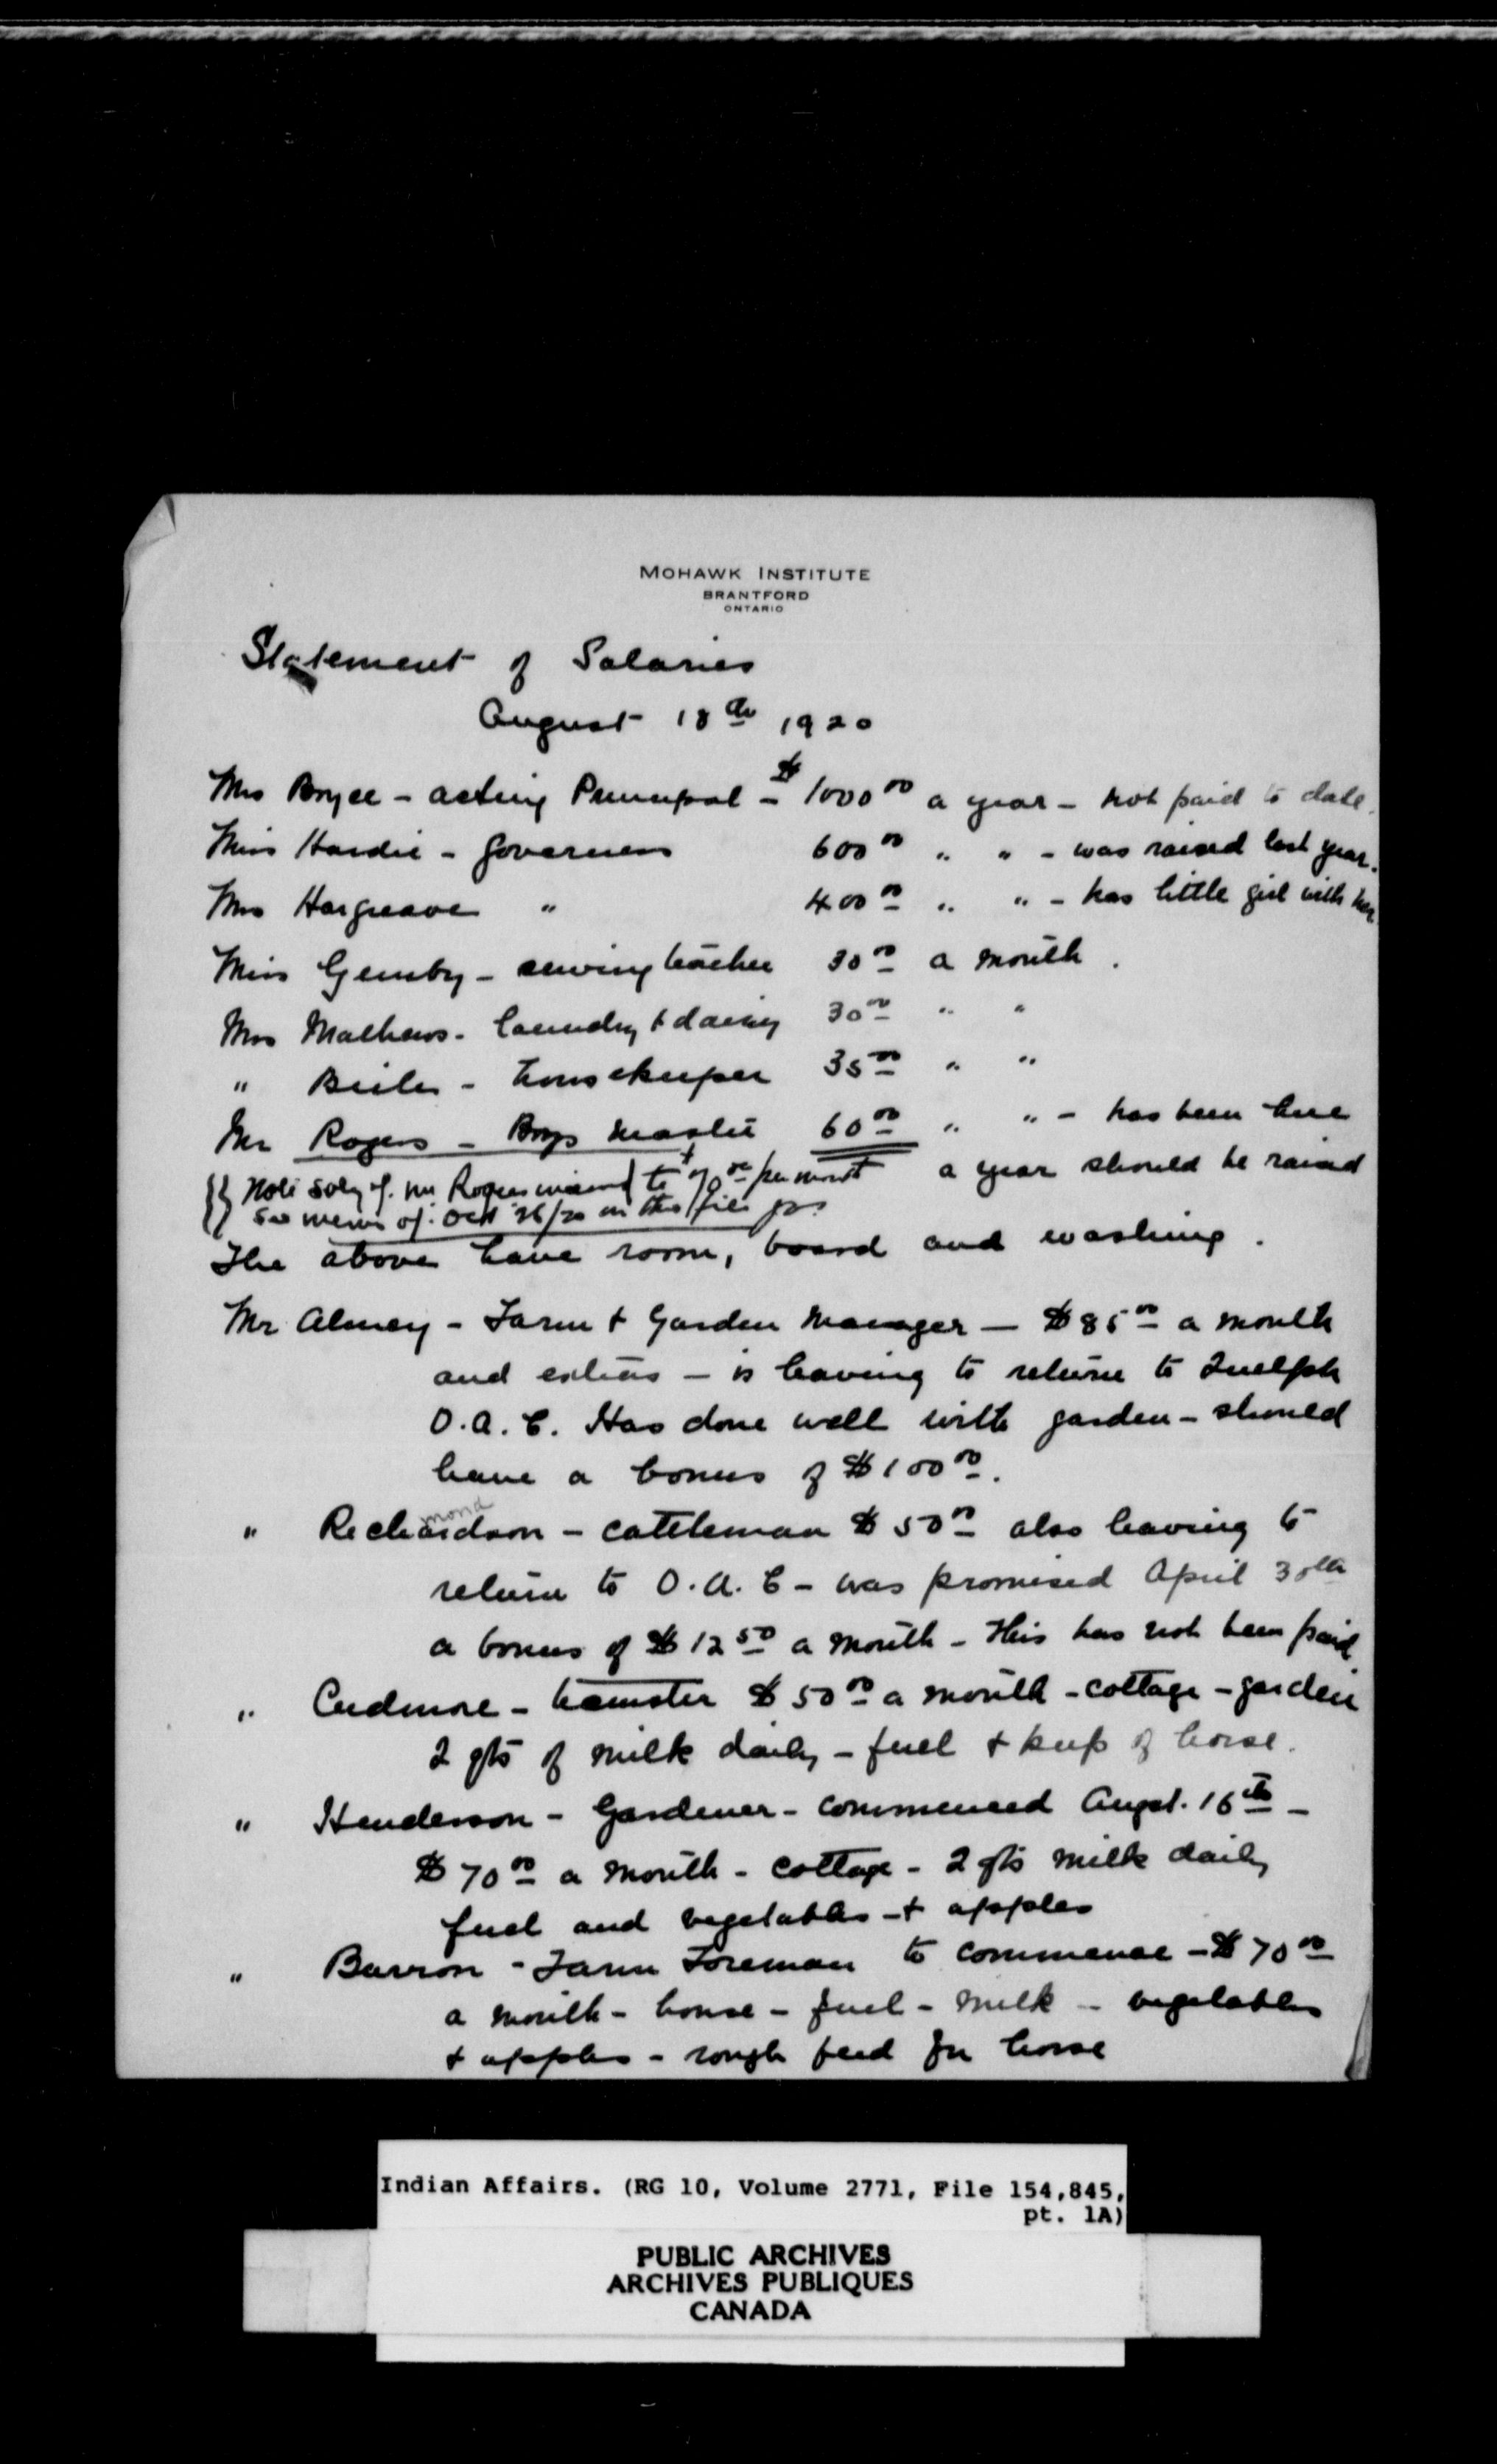 MOHAWK INSTITUTE
BRANTFORD
ONTARIO
Statement of Salaries
August 18th 1920
Mrs Boyce - acting Principal - $1000 00 a year - not paid to date.
Miss Hardie - Governess 600 00 " " - was raised last year.
Mrs Hargreave " 400 00 " " - has little girl with her
Miss Gemby - sewing teacher 30 00 a month.
Mrs Mathews - laundry & dairy 30 00 " "
" - housekeeper 35 00 " "
Mr Rogers - Boys master 60 00 " " - has been here
a year should be raised
Note saly of. Mr Rogers increased to $70 00 per month
See memo of. Oct 26/20 on this file
The above have room, board and washing.
Mr Almey - Farm & Garden Manager - $85 00 a month
and extras - is leaving to return to Guelph
O.A.C. Has done well with garden - should
have a bonus of $100 00.
mond
" Richardson - cattleman $50 00 also leaving to
return to O.A.C - was promised April 30th
a bonus of $12 50 a month - This has not been paid
" Cudmore - teamster $50 00 a month - cottage - garden
2 qts of milk daily - fuel & keep of horse.
" Henderson - Gardener - commenced Augst. 16th -
$70 00 a month - cottage - 2 qts milk daily
fuel and vegetables - & apples
" Barron - Farm Foreman to commence - $70 00
a month - house - fuel - milk - vegetables
& apples - rough feed for horse
Indian Affairs. (RG 10, Volume 2771, File 154,845,
pt. 1A)
PUBLIC ARCHIVES
ARCHIVES PUBLIQUES
CANADA